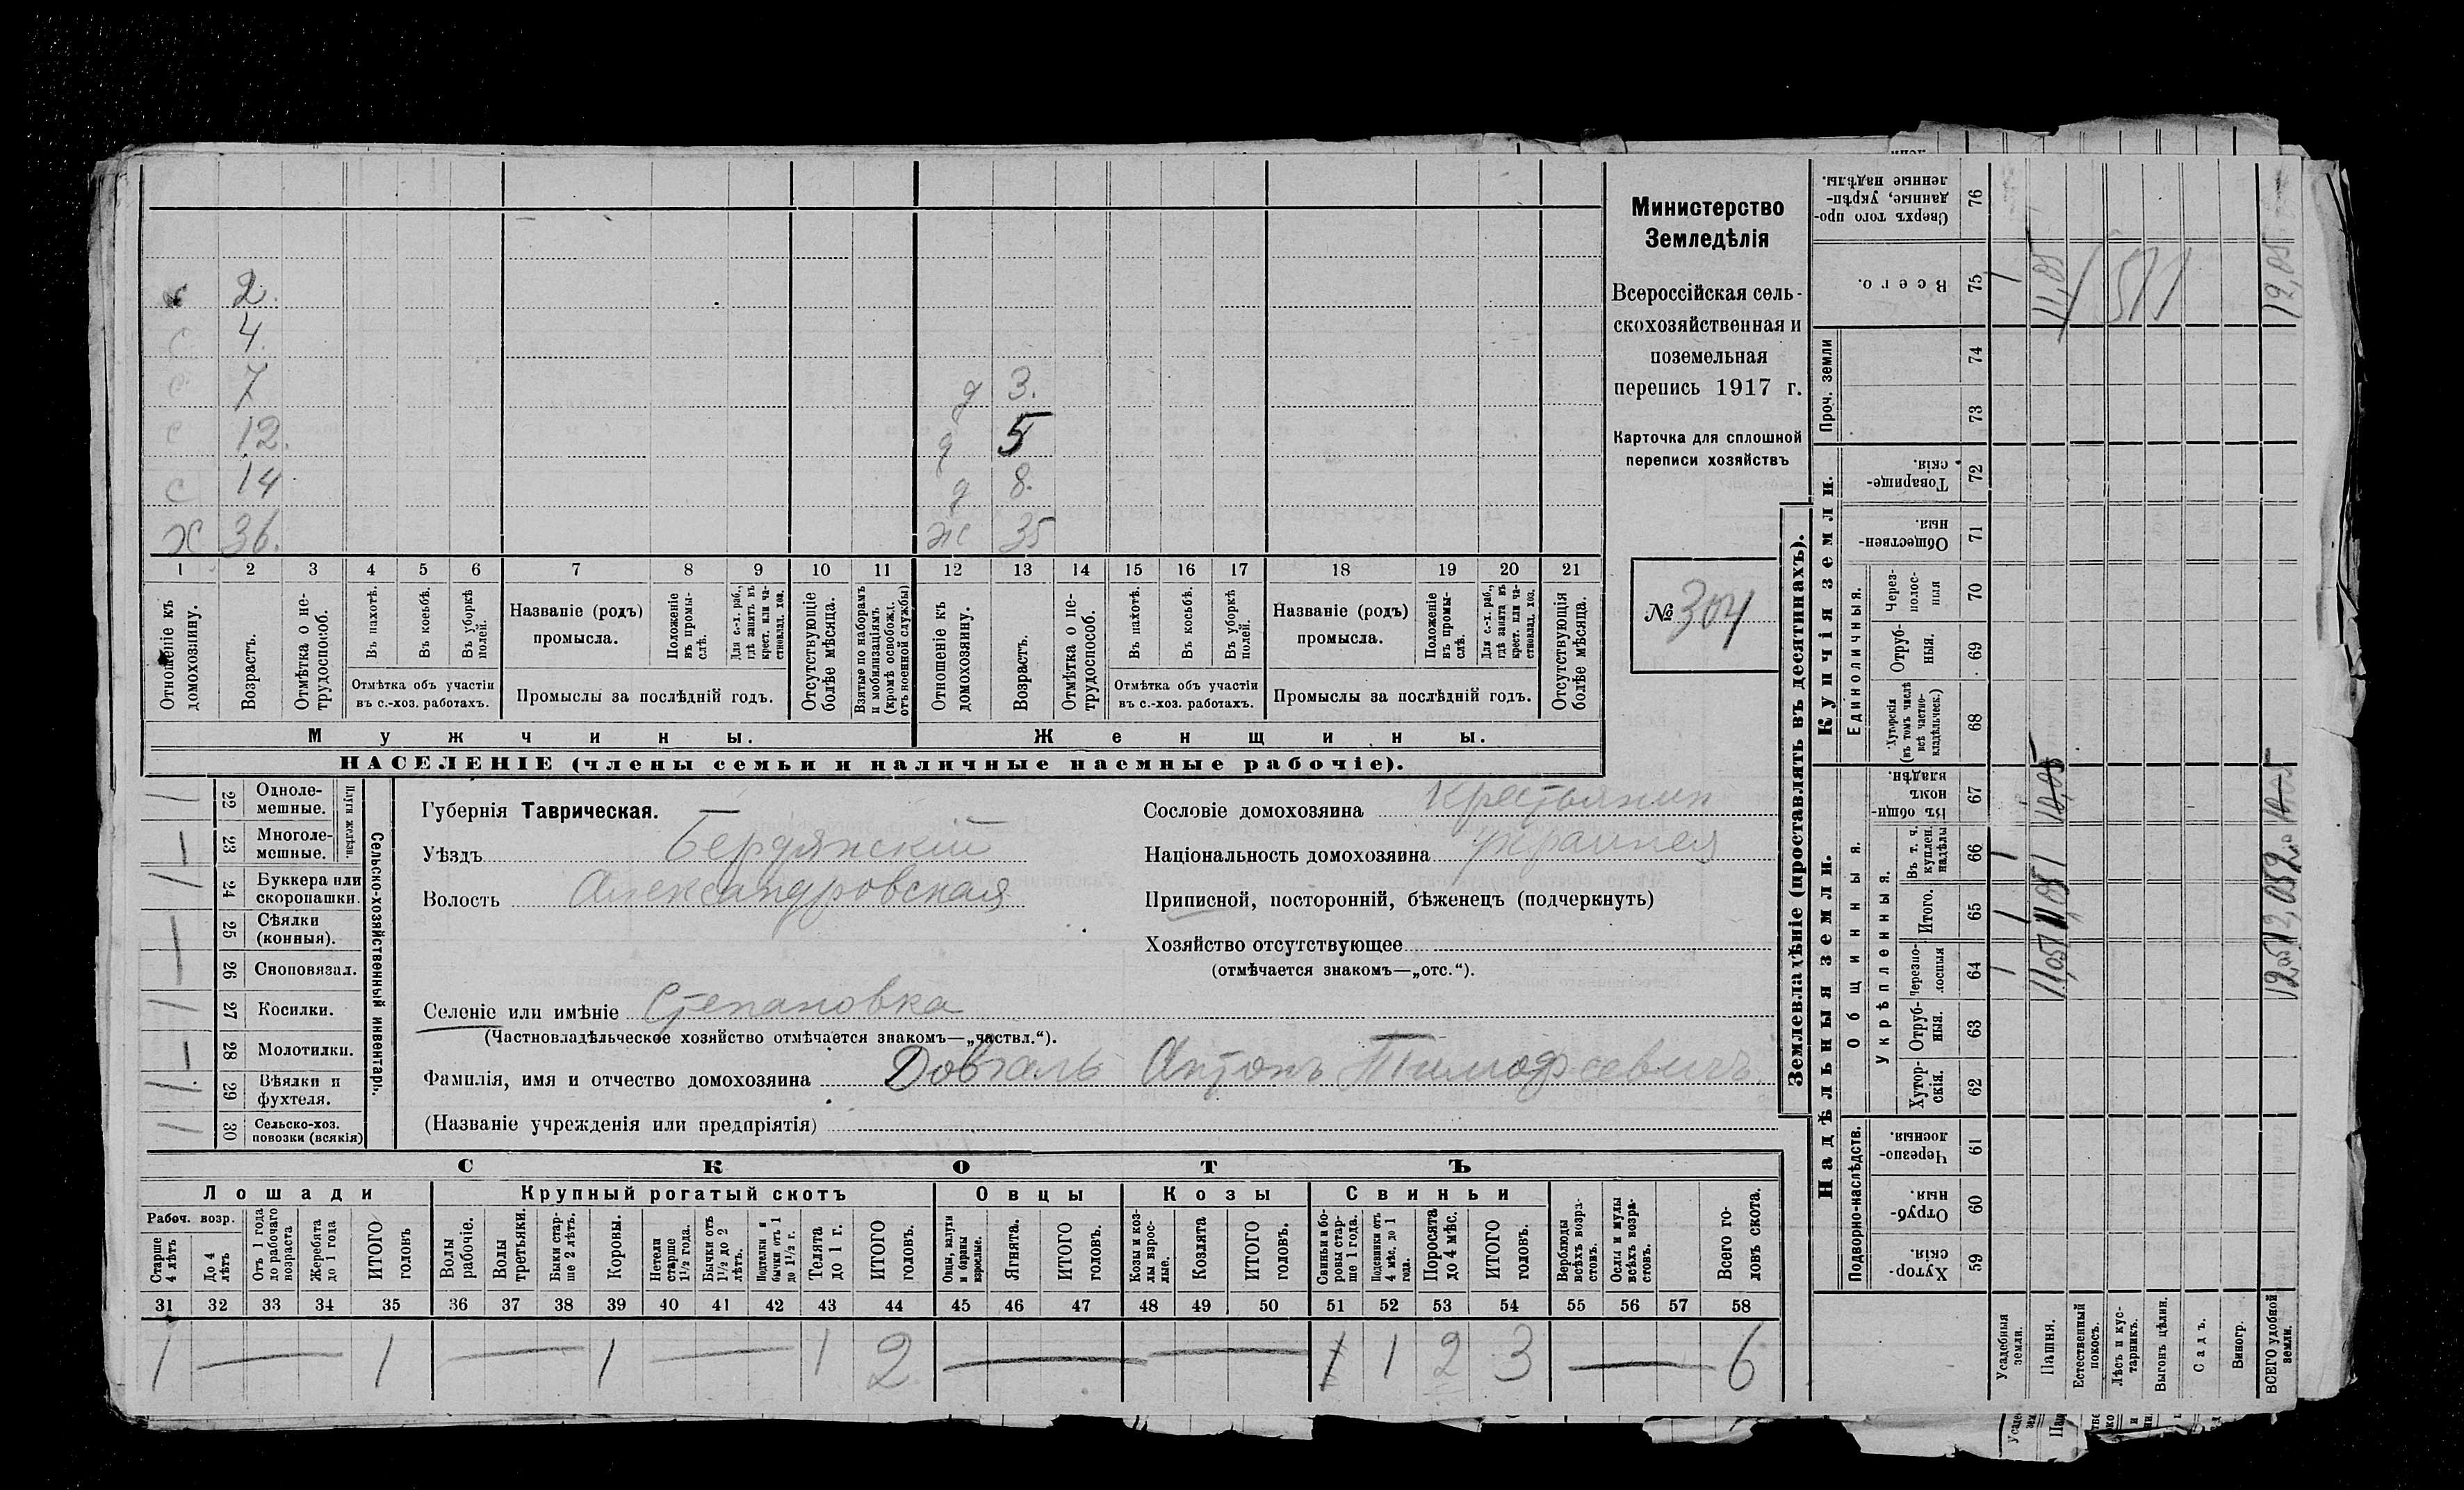 с 2.
с 4.
с 7
с 12.
с 14
х 36.
д 3.
д 5
д 8.
ж 35
1 2 3 4 5 6 7 8 9 10 11 12 13 14 15 16 17 18 19 20 21
Отношеніе къ домохозяину.
Возрастъ.
Отмѣтка о не-трудоспособ.
Въ пахотѣ.
Въ косьбѣ.
Въ уборкѣ полей.
Отмѣтка объ участіи
въ с.-хоз. работахъ.
Названіе (родъ)
промысла.
Положеніе въ промы-слѣ.
Для с.-х. раб., гдѣ занятъ въ крест. или ча-стновлад. хоз.
Промыслы за послѣдній годъ.
Отсутствующіе болѣе мѣсяца.
Взятые по наборамъ и мобилизаціямъ (кромѣ освобожд. отъ военной службы)
Отношеніе къ домохозяину.
Возрастъ.
Отмѣтка о не-трудоспособ.
Въ пахотѣ.
Въ косьбѣ.
Въ уборкѣ полей.
Отмѣтка объ участіи
въ с.-хоз. работахъ.
Названіе (родъ)
промысла.
Положеніе въ промы-слѣ.
Для с.-х. раб., гдѣ занята въ крест. или ча-стновлад. хоз.
Промыслы за послѣдній годъ.
Отсутствующія болѣе мѣсяца.
Мужчины.
Женщины.
НАСЕЛЕНІЕ (члены семьи и наличные наемные рабочіе).
Министерство
Земледѣлія
Всероссійская сель-
скохозяйственная и
поземельная
перепись 1917 г.
Карточка для сплошной
переписи хозяйствъ
№ 304
22 Одноле-мешные.
23 Многоле-мешные.
Плуги желѣзн.
24 Буккера или скоропашки.
25 Сѣялки (конныя).
26 Сноповязал.
27 Косилки.
28 Молотилки.
29 Вѣялки и фухтеля.
30 Сельско-хоз. повозки (всякія)
Сельско-хозяйственный инвентарь.
Губернія Таврическая.
Уѣздъ Бердянскій
Волость Александровская
Селеніе или имѣніе Степановка
(Частновладѣльческое хозяйство отмѣчается знакомъ—„частвл.“).
Фамилія, имя и отчество домохозяина Довгаль Антонъ Тимофеевичъ
(Названіе учрежденія или предпріятія)
Сословіе домохозяина Крестьянин
Національность домохозяина
Приписной, посторонній, бѣженецъ (подчеркнуть)
Хозяйство отсутствующее
(отмѣчается знакомъ—„отс.“).
СКОТЪ
Лошади
Крупный рогатый скотъ
Овцы
Козы
Свиньи
Рабоч. возр.
Старше 4 лѣтъ
До 4 лѣтъ
Отъ 1 года до рабочаго возраста
Жеребята до 1 года
ИТОГО головъ
Волы рабочіе.
Волы третьяки.
Быки стар-ше 2 лѣтъ.
Коровы.
Нетели старше 1½ года.
Бычки отъ 1½ до 2 лѣтъ.
Подтелки и бычки отъ 1 до 1½ г.
Телята до 1 г.
ИТОГО головъ.
Овцы, валухи и бараны взрослые.
Ягнята.
ИТОГО головъ.
Козы и коз-лы взрос-лые.
Козлята
ИТОГО головъ.
Свиньи и бо-ровы стар-ше 1 года.
Подсвинки отъ 4 мѣс. до 1 года.
Поросята до 4 мѣс.
ИТОГО головъ.
Верблюды всѣхъ возра-стовъ.
Ослы и мулы всѣхъ возра-стовъ.
Всего го-ловъ скота.
31 32 33 34 35 36 37 38 39 40 41 42 43 44 45 46 47 48 49 50 51 52 53 54 55 56 57 58
1 — 1 — 1 — 1 2 — — 1 1 2 3 — 6
Землевладѣніе (проставлять въ десятинахъ).
Надѣльныя земли.
Купчія земли.
Проч. земли
Подворно-наслѣдств.
Общинныя.
Укрѣпленныя.
Единоличныя.
59 Хутор-скія.
60 Отруб-ныя.
61 Черезпо-лосныя.
62 Хутор-скія.
63 Отруб-ныя.
64 Черезпо-лосныя
65 Итого.
66 Въ т. ч. куплен. надѣлы
67 Въ общин-номъ владѣн.
68 Хуторскія (въ томъ числѣ всѣ частно-владѣльческ.)
69 Отруб-ныя.
70 Через-полос-ныя
71 Обществен-ныя.
72 Товарище-скія.
73
74
75 Всего.
76 Сверхъ того про-данные, укрѣп-ленные надѣлы.
Усадебныя земли.
Пашня.
Естественный покосъ.
Лѣсъ и кус-тарникъ.
Выгонъ цѣлин.
Садъ.
Виногр.
ВСЕГО удобной земли.
11,05
10,05
11,05
12,05
12,05